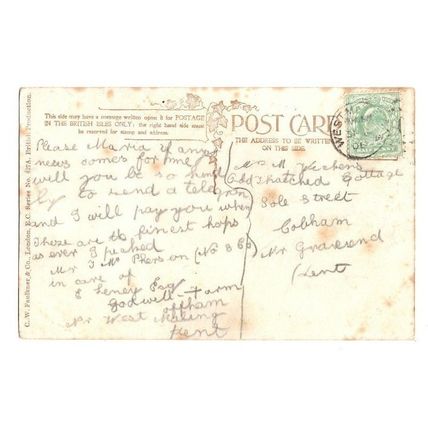 This side may have a message written upon it for POSTAGE
IN THE BRITISH ISLES ONLY: the right hand side must
be reserved for stamp and address.
POST CARD
THE ADDRESS TO BE WRITTEN
ON THIS SIDE.
C. W. Faulkner & Co., London, E.C. Series No. British Production.
WEST
Please Maria if any
news comes for me
will you be so kind
ly to send a telagram
and I will pay you when
These are the finest hops
as ever I picked
Mr J Mc Pherson (No 860)
in care of
E Leney Esq
Godwell Farm
Offham
Nr West Malling
Kent
Mrs M
Old Thatched Cottage
Sole Street
Cobham
Nr Gravesend
Kent